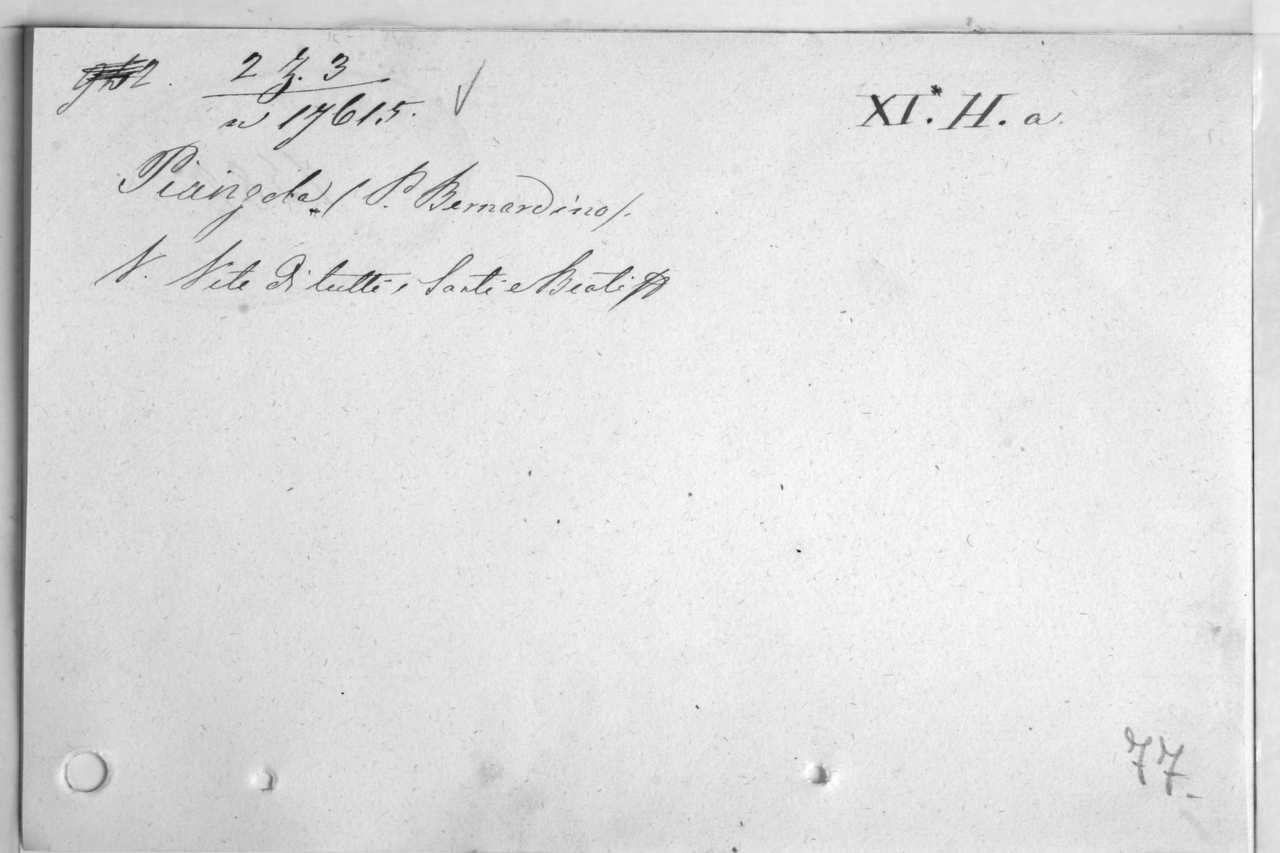 2 Z. 3
n 17615.
XI.* H. a.
Piangola (P. Bernardino).
V. Vite di tutti i Santi e Beati
77.